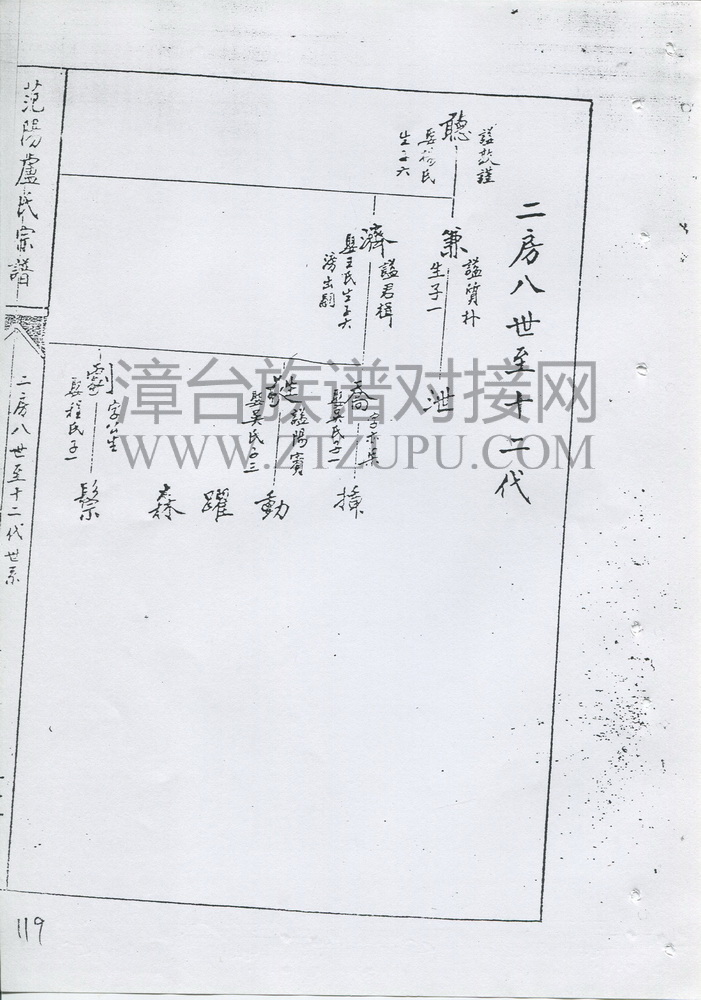 二房八世至十二代
聽
諡敦謹
娶程氏
生子六
兼
諡質朴
生子一
濟
諡君楫
娶王氏生子六
滂出嗣
泄
喬
字亦吳
娶吳氏子一
諡陽賓
娶吳氏子三
劇
字公生
娶程氏子一
動
躍
森
鬃
范陽盧氏宗譜
二房八世至十二代世系
119
漳台族谱对接网
WWW.ZTZUPU.COM